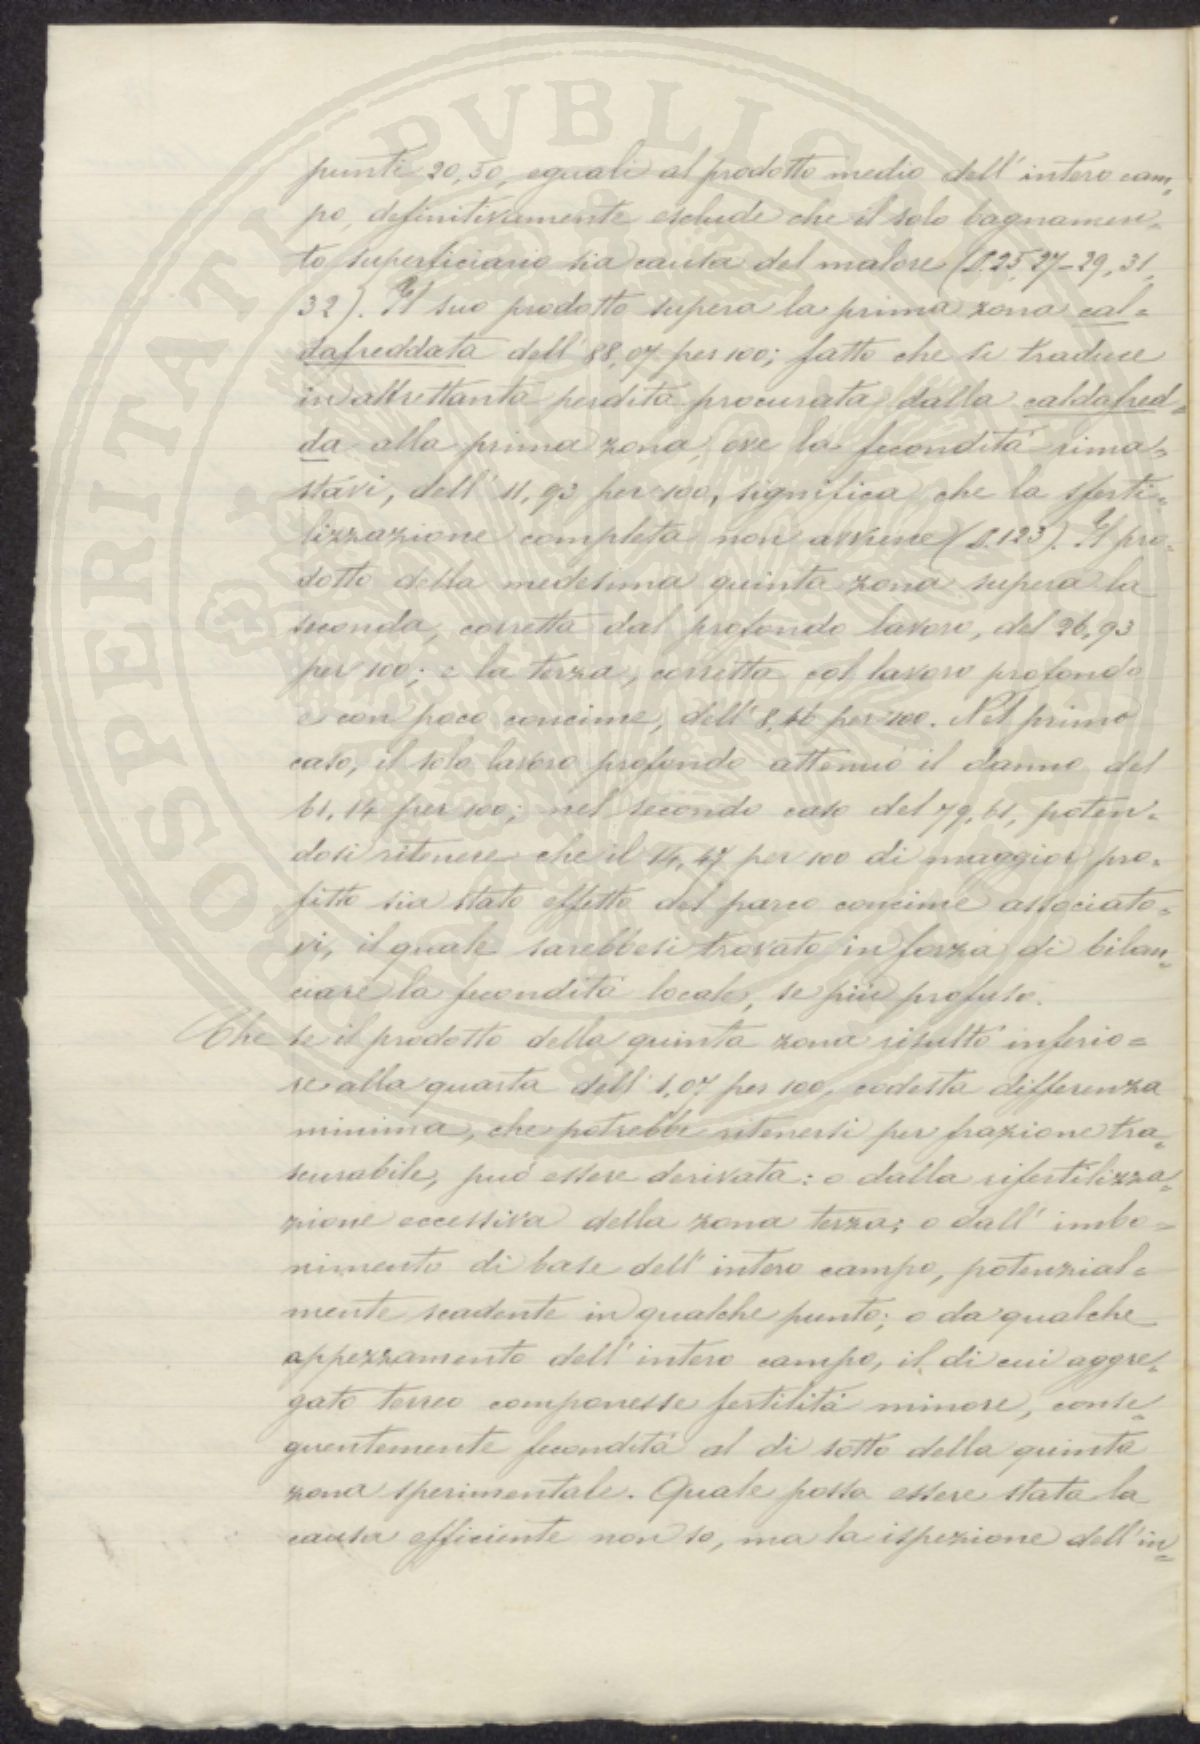 punti 20,50, eguali al prodotto medio dell' intero cam=
po, definitivamente esclude che il solo bagnamen=
to superficiario sia causa del malore (§. 25, 27-29, 31,
32). Il suo prodotto supera la prima zona cal=
dafreddata dell' 88,07 per 100; fatto che si traduce
in altrettanta perdita procurata dalla caldafred=
da alla prima zona, ove la fecondità rima=
stavi, dell' 11,93 per 100, significa che la sferti=
lizzazione completa non avviene (§. 123). Il pro=
dotto della medesima quinta zona supera la
seconda, corretta dal profondo lavoro, del 26,93
per 100; e la terza, corretta col lavoro profondo
e con poco concime, dell' 8,46 per 100. Nel primo
caso, il solo lavoro profondo attenuò il danno del
61,14 per 100; nel secondo caso del 79,61, poten=
dosi ritenere che il 14,47 per 100 di maggior pro=
fitto sia stato effetto del parco concime associato=
vi, il quale sarebbesi trovato in forza di bilan=
ciare la fecondità locale, se più profuso.
Che se il prodotto della quinta zona risultò inferio=
re alla quarta dell' 1,07 per 100, codesta differenza
minima, che potrebbe ritenersi per frazione tra=
scurabile, può essere derivata: o dalla rifertilizza=
zione eccessiva della zona terza; o dall' imbo=
nimento di base dell' intero campo, potenzial=
mente scadente in qualche punto; o da qualche
appezzamento dell' intero campo, il di cui aggre=
gato terreo componesse fertilità minore, conse=
guentemente fecondità al di sotto della quinta
zona sperimentale. Quale possa essere stata la
causa efficiente non so, ma la ispezione dell' in=
PROSPERITATI PVBLICAE